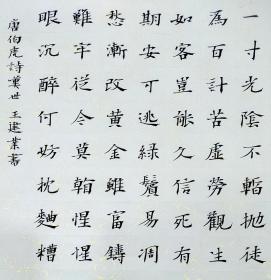 一寸光陰不暫拋徒
為百計苦虛勞觀生
如客豈能久信死有
期安可逃綠鬢易凋
愁漸改黃金雖富鑄
難牢從今莫惺惺
眼沉醉何妨枕麯糟
唐伯虎詩世 王建業書